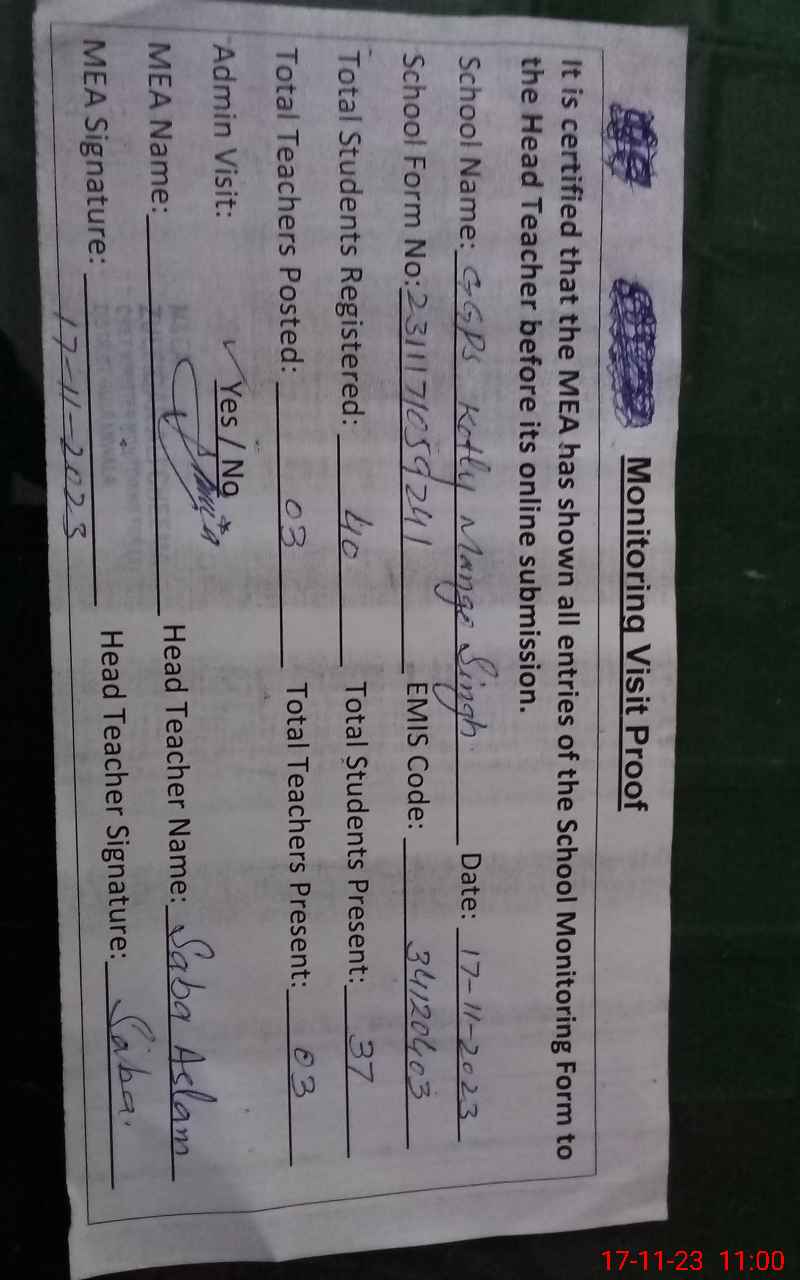 Monitoring Visit Proof
It is certified that the MEA has shown all entries of the School Monitoring Form to
the Head Teacher before its online submission.
School Name: GGPS Kotly Mange Singh Date: 17-11-2023
School Form No: 2311171059241 EMIS Code: 34120403
Total Students Registered: 40 Total Students Present: 37
Total Teachers Posted: 03 Total Teachers Present: 03
Admin Visit: ✓ Yes / No
MEA Name: Head Teacher Name: Saba Aslam
MEA Signature: Head Teacher Signature: Saba
17-11-2023
17-11-23 11:00